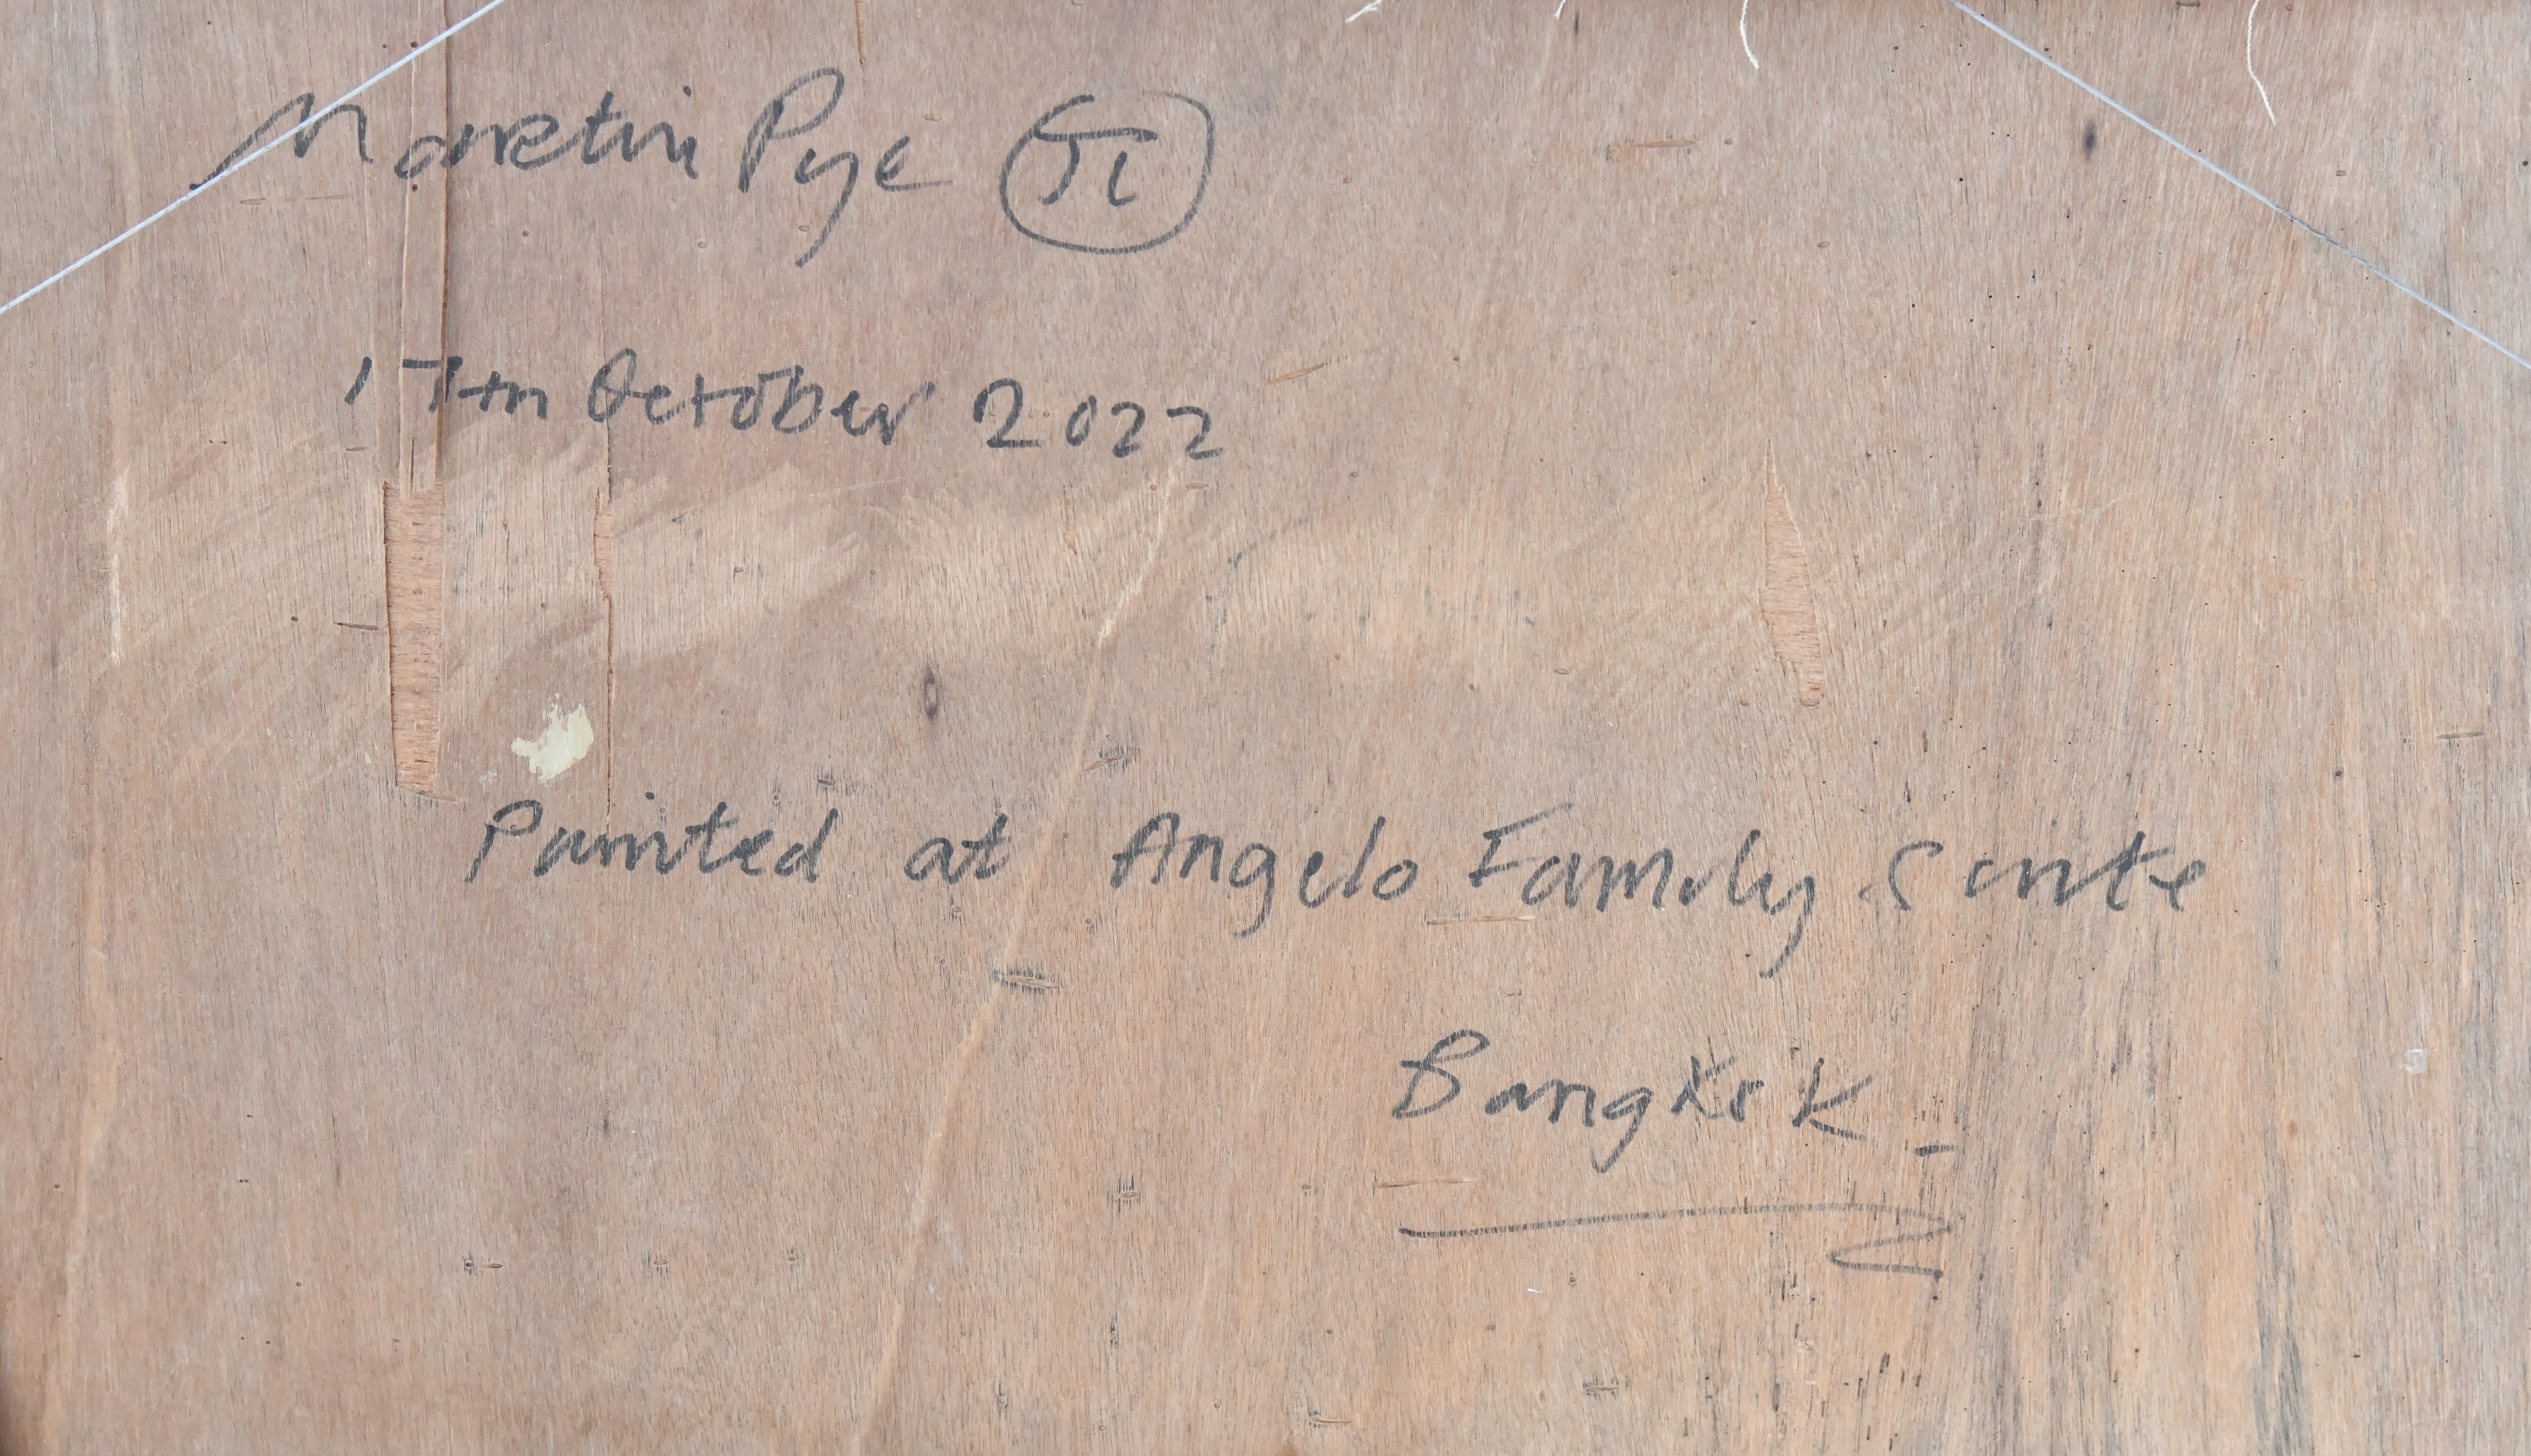 Martin Pye π
17th October 2022
Painted at Angelo Family Suite
Bangkok